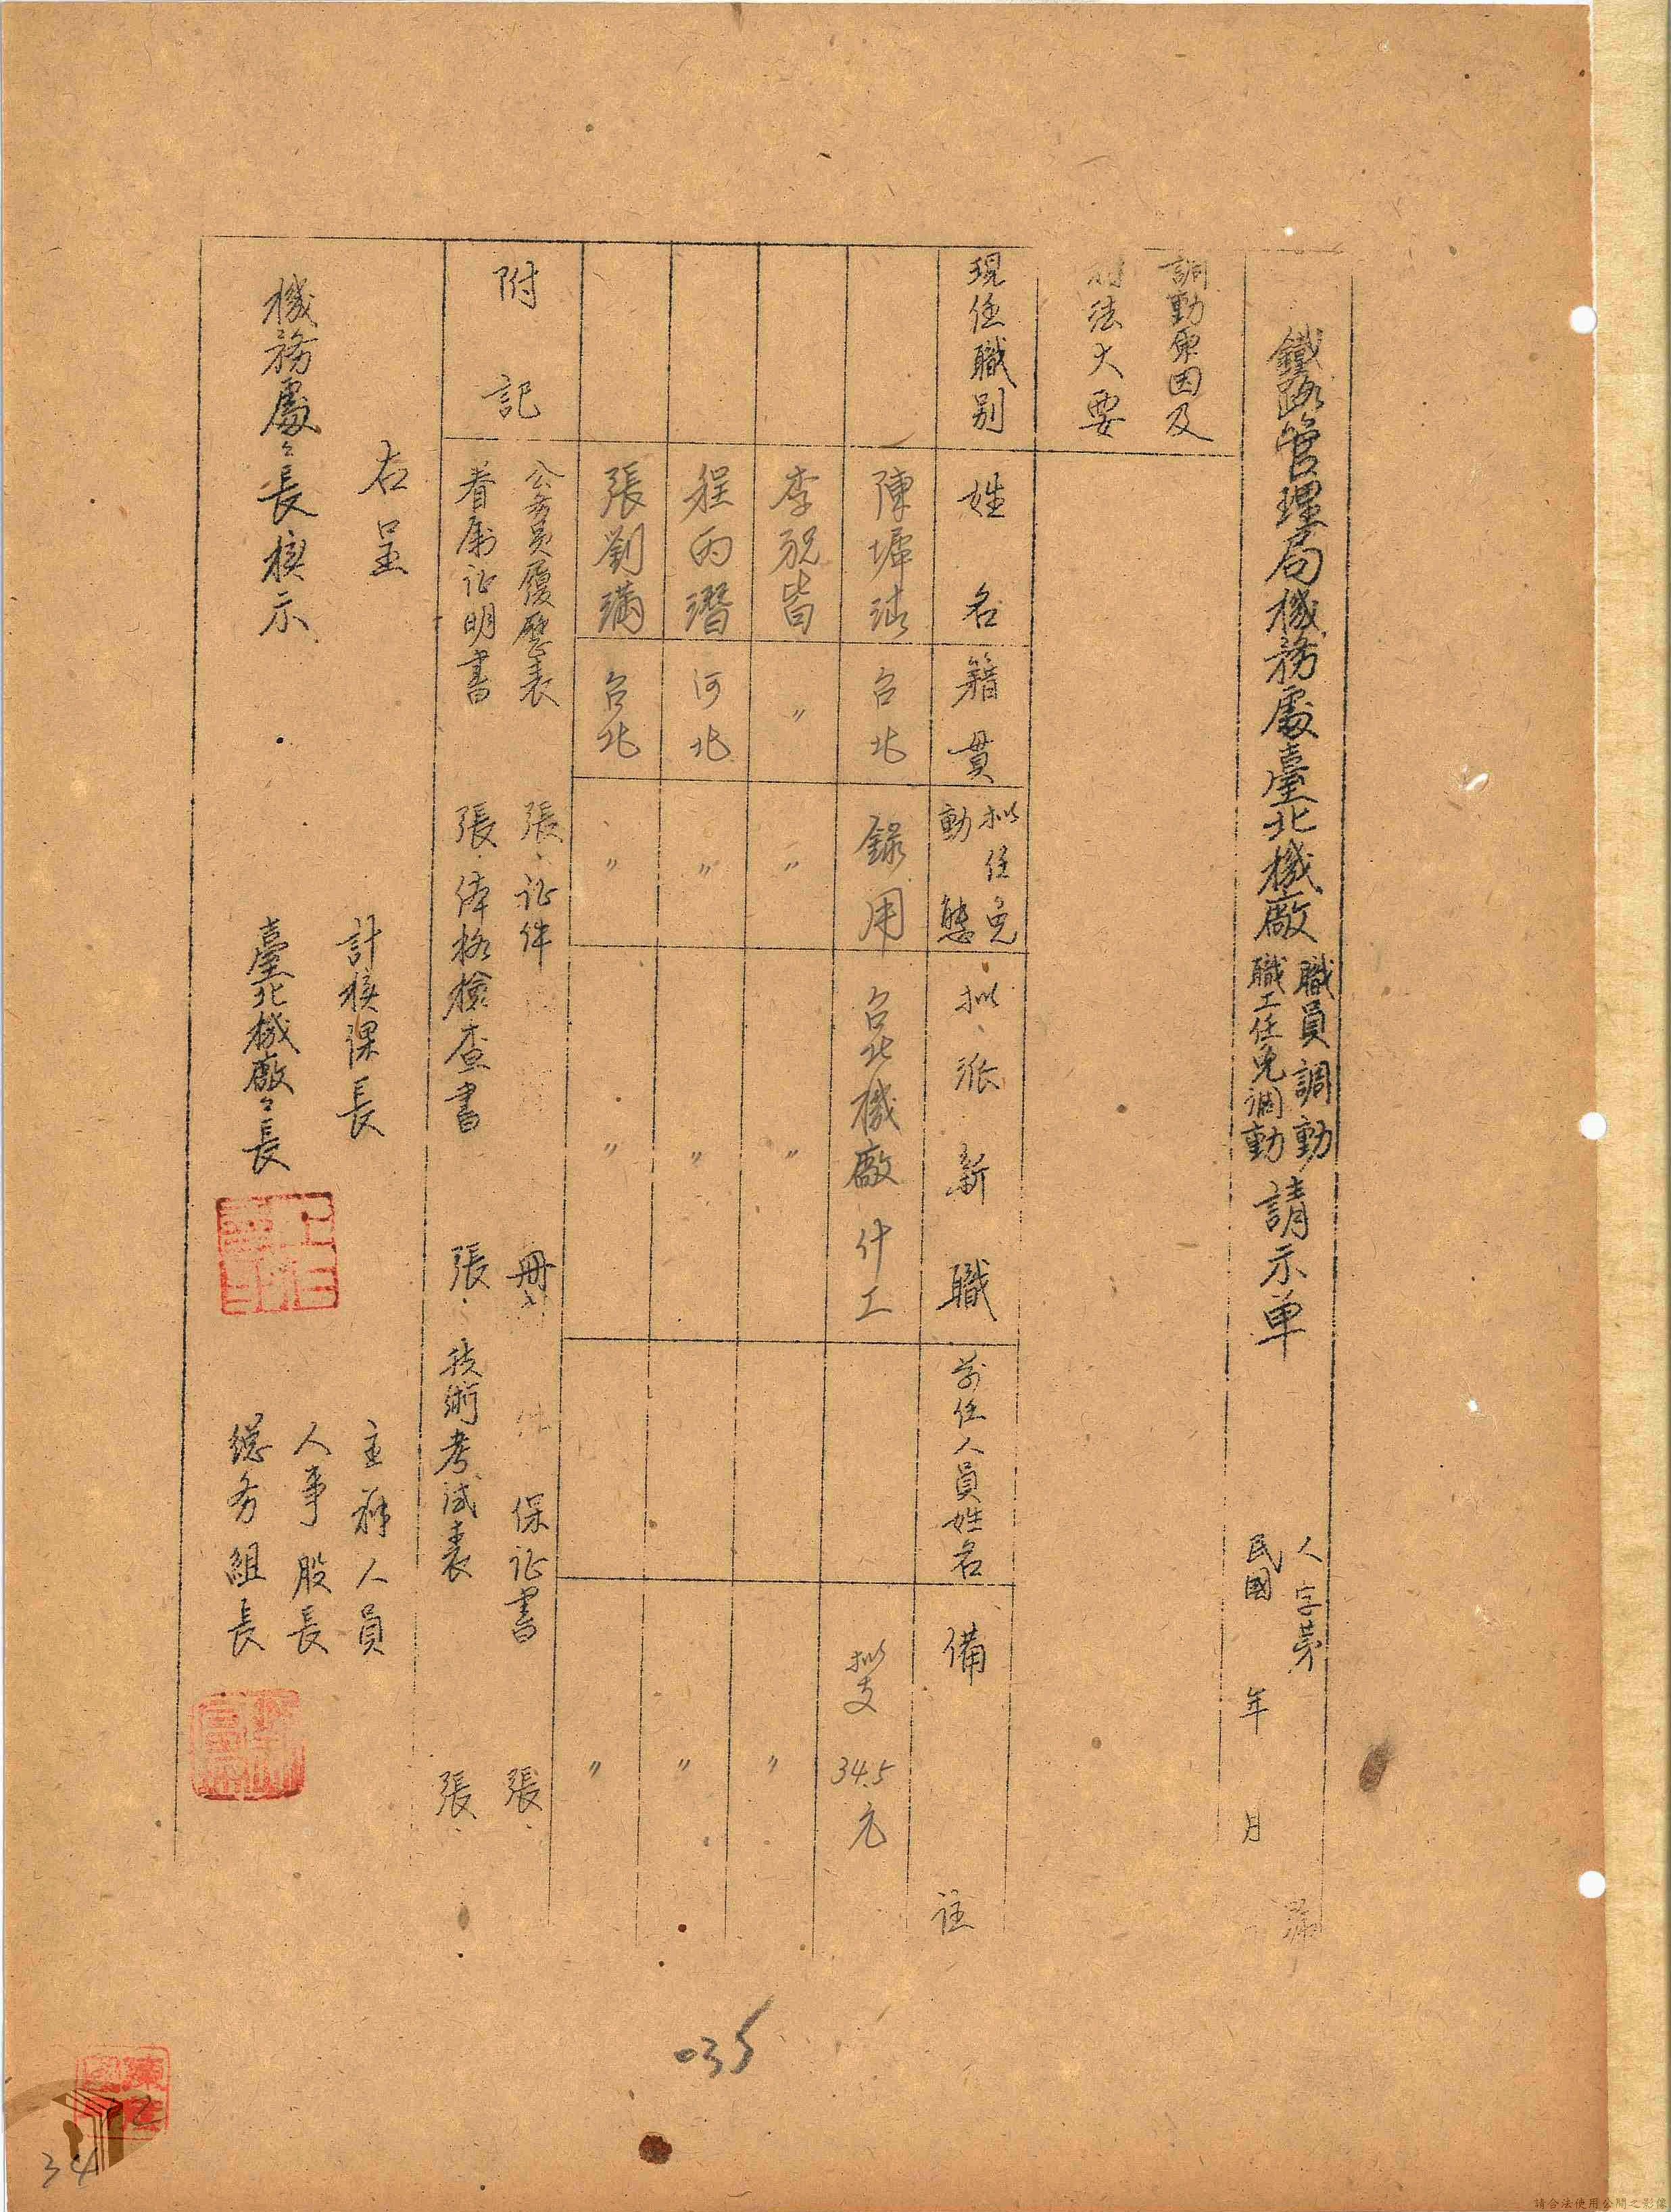 鐵路管理局機務處臺北機廠
職員調動
職工任免調動
請示单
人字第 號
民國 年 月
調動原因及
辦法大要
現任職別
姓名
籍貫
拟任免
動態
拟派新職
前任人員姓名
備註
陳墀 台北 錄用 台北機廠什工 拟支34.5元
李 皆 〃 〃 〃 〃
程 河北 〃 〃 〃
張劉滿 台北 〃 〃 〃
附記
公务員履歷表 張、证件 冊、 保证書 張、
眷屬证明書 張、体格檢查書 張、技術考試表 張、
右呈
機務處々長核示
計核课長
臺北機廠々長
主辦人員
人事股長
総务組長
035
2
34
請合法使用公開之影像